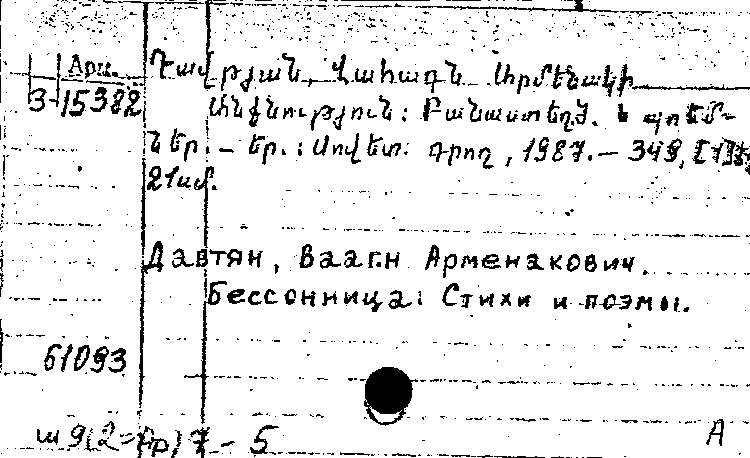 Арм.
3-15382
Դավթյան, Վահագն Արմենակի
Անքնություն: Բանաստեղծ. և պոեմ-
ներ. – Եր.: Սովետ. գրող, 1987. – 349,
21սմ.
Давтян, Ваагн Арменакович.
Бессонница: Стихи и поэмы.
61093
ш 9(2=Ар) 7 - 5
А